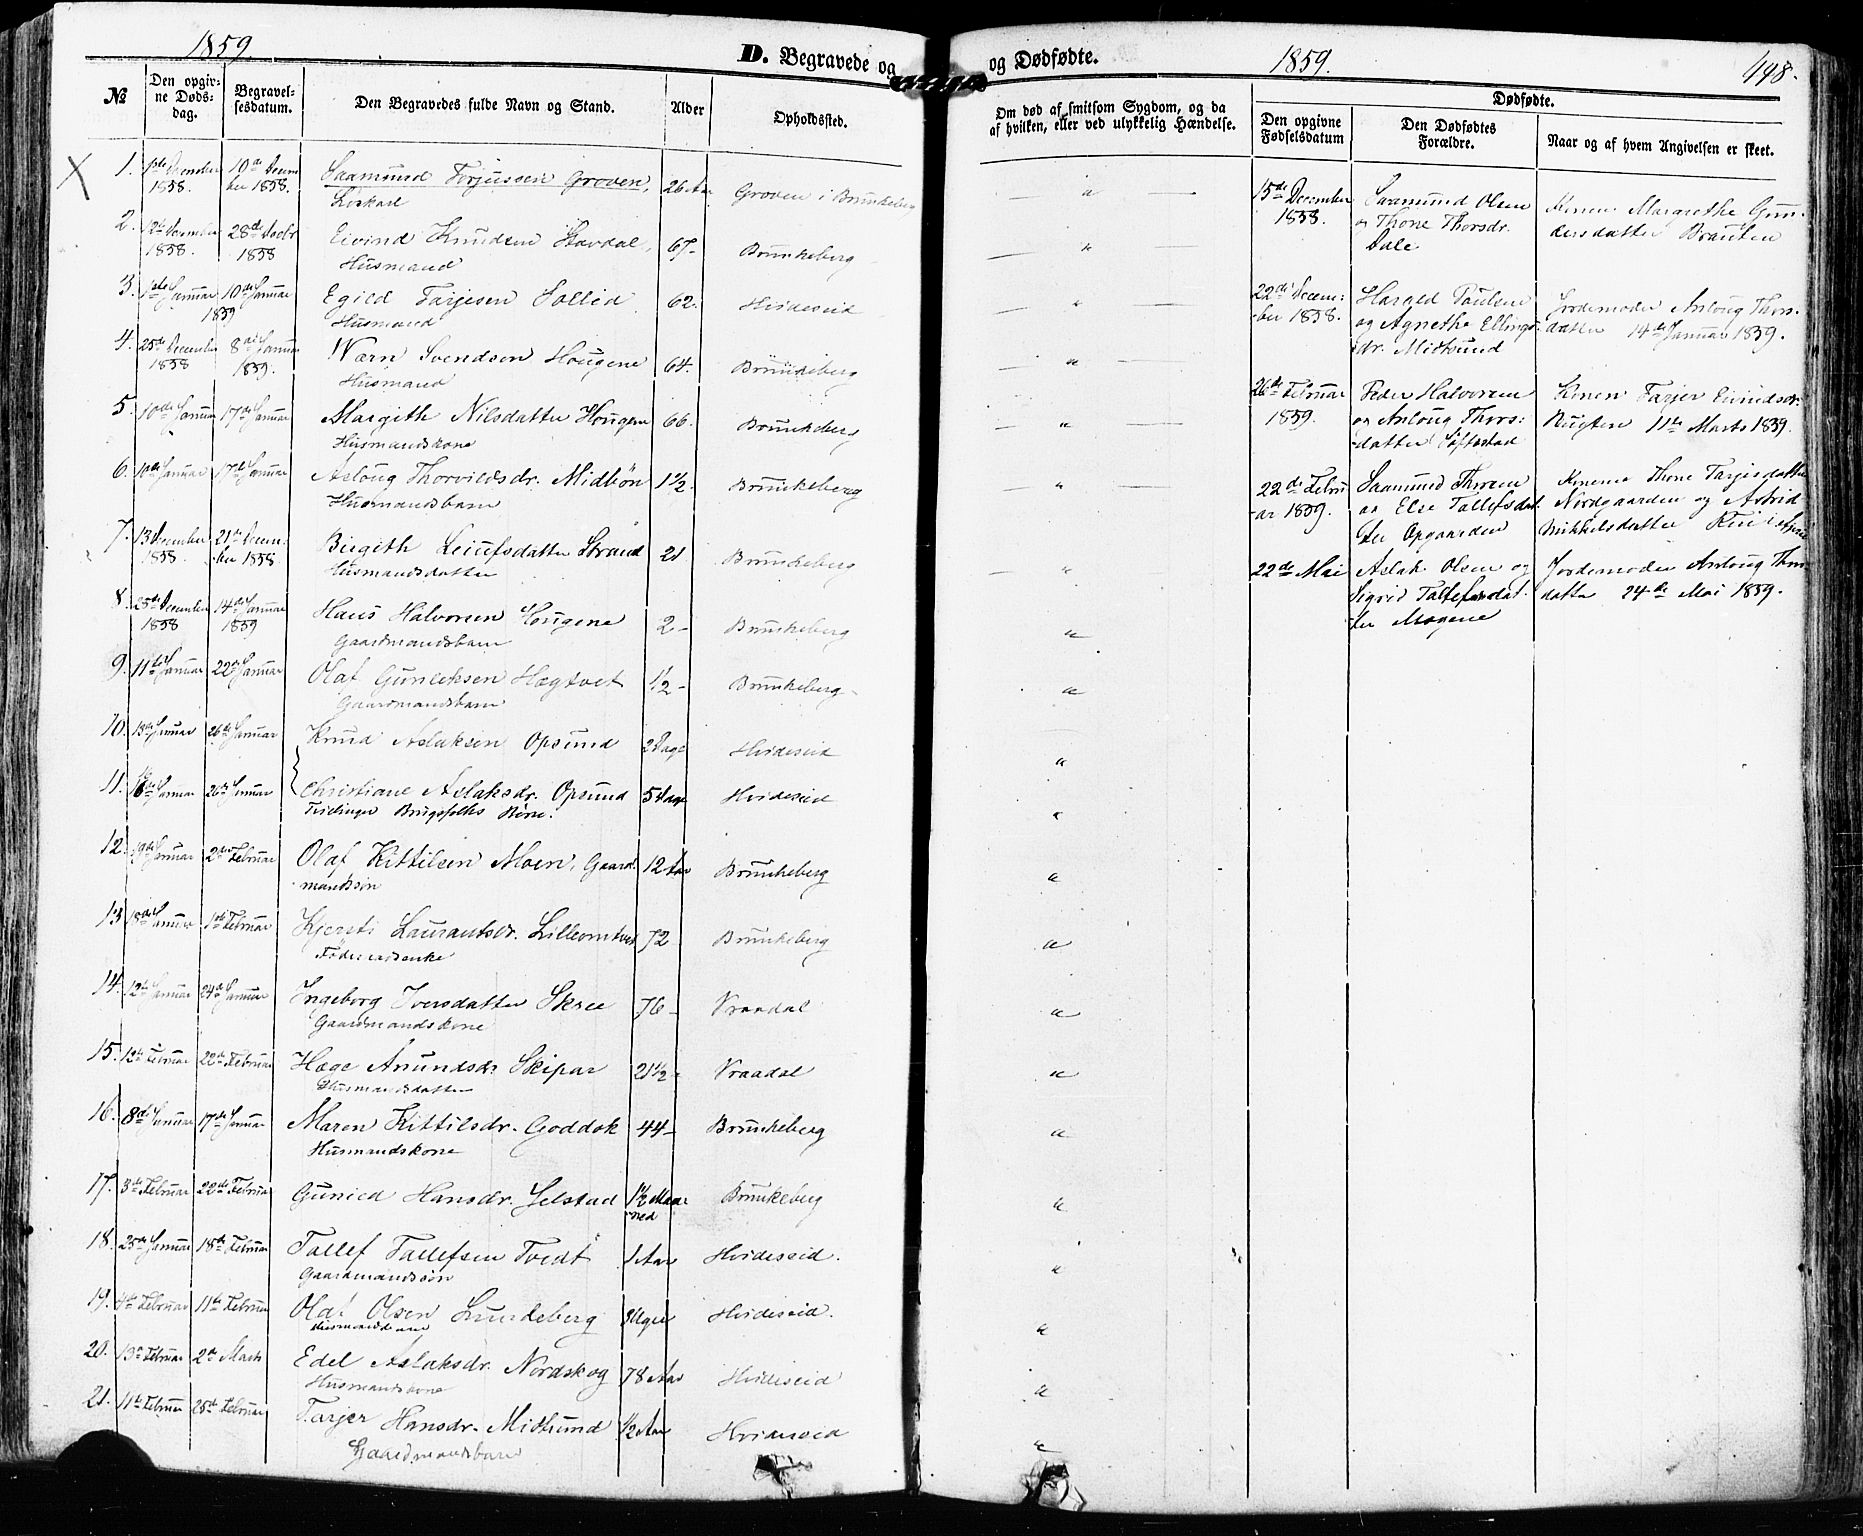 1859.
D. Begravede og
No
Den opgivne Dødsdag.
Begravelsesdatum.
Den Begravedes fulde Navn og Stand.
Alder
Opholdssted.
1. 1ste December 1858. 10de December 1858. Saamund Torjussen Groven, 26 Aar Groven i Brunkeberg
2. December 1858. 28de Decbr 1858 Eivind Knudsen Stavdal, 67- Brunkeberg
Husmand
3. Januar 10de Januar 1859 Egild Tarjesen Sollid 62. Hvideseid
Husmand
4. 25de December 1858 8de Januar 1859. Svendsen Hougene 64. Brunkeberg
Husmand
5. 10de Januar 17de Januar Margith Nilsdatter Hougene 66. Brunkeberg
Husmandskone
6. 10de Januar 17de Januar Aslaug Thorvildsdr. Midbøn 1 1/2. Brunkeberg
Husmandsbarn
7. 13 December 1858. 21de December 1858 Birgith Leiufsdatter Strand 21 Brunkeberg
Husmandsdatter
8. 25de December 1858 14de Januar 1859 Hans Halvorsen Hougene 2- Brunkeberg
Gaardmandsbarn
9. 11te Januar 22de Januar Olaf Gunleksen Hægtvet 1/2- Brunkeberg
Gaardmandsbarn
10. Januar 26de Januar Knud Aslaksen Opsund 2 Dage Hvideseid
11. Januar 26de Januar Christiane Aslaksdr. Opsund 5 Dage Hvideseid
Tvillinger Brugsfolks Børn.
12. 19de Januar 2den Februar Olaf Kittilsen Moen, Gaard- 12 Aar Brunkeberg
mandssøn
13 18de Januar 1ste Februar Kjersti Laurantsdr. 72 Brunkeberg
14. 12te Januar 24de Januar Ingeborg Iversdatter Skree 76- Vraadal
Gaardmandskone
15. 12te Februar 22de Februar Hæge Anundsdr Skipar 21 1/2- Vraadal
Husmandsdatter
16. 8de Januar 17de Januar Maren Kittilsdr. Goddok 44- Brunkeberg
Husmandskone
17. 3de Februar 22de Februar Gunild Hansdr. Jelstad 1 1/2 Maaned Brunkeberg
18. 25de Januar 18de Februar Tallef Tallefsen Tvedt 1 Aar Hvideseid.
Gaardmandssøn
19. 4de Februar 11te Februar Olaf Olsen Lundeberg Uger Hvideseid.
Husmandsbarn
20. 13de Februar 2den Marts Edel Aslaksdr. Nordskog 78 Aar Hvideseid
Husmandskone
21. 11te Februar 25de Februar Tarjer Hansdr. Midtsund 1/2 Aar Hvideseid
Gaardmandsbarn
og Dødfødte.
1859.
498.
Om død af smitsom Sygdom, og da
af hvilken, eller ved ulykkelig Hændelse.
Dødfødte.
Den opgivne Fødselsdatum
Den Dødfødtes Forældre.
Naar og af hvem Angivelsen er skeet.
15de December 1858. Saamund Olsen og Thone Thorsdr. Dale Margrethe Gundersdatter Brauten
22de December 1858. Harald Paulsen og Agnethe Ellingsdr. Midtsund Jordemoder Aslaug Thorsdatter 14de Januar 1859.
26de Februar 1859. Peder Halvorsen og Aslaug Thorsdatter Søftestad Konen Tarjer Eivindsdr. 11te Marts 1859.
22de Februar 1859. Saamund og Else Tallefsdatter Opgaarden Konerne Thone Tarjesdatter Nordgaarden og Astrid Mikkelsdatter
22de Mai Aslak Olsen og Sigrid Tallefsdatter Mogene Jordemoder Aslaug Thorsdatter 24de Mai 1859.